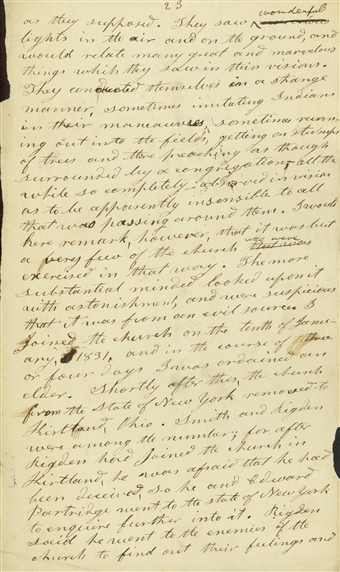 23
as they supposed. They saw wonderful
lights in the air and on the ground, and
would relate many great and marvelous
things which they saw in their visions.
They conducted themselves in a strange
manner, sometimes imitating Indians
in their maneuvres, sometimes runn-
ing out into the fields, getting on stumps
of trees and there preaching as though
surrounded by a congregation,—all the
while so completely absorbed in visions
as to be apparently insensible to all
that was passing around them. I would
here remark, however, that it was but
a very few of the church who were
exercised in that way. The more
substantial minded looked upon it
with astonishment, and were suspicious
that it was from an evil source. I
joined the church on the tenth of Janu-
ary, 1831, and in the course of three
or four days I was ordained an
elder. Shortly after this, the church
from the State of New York removed to
Kirtland, Ohio. Smith and Rigdon
were among the number; for after
Rigdon had joined the church in
Kirtland, he was afraid that he had
been deceived, so he and Edward
Partridge went to the state of New York
to enquire further into it. Rigdon
said he went to the enemies of the
church to find out their feelings and